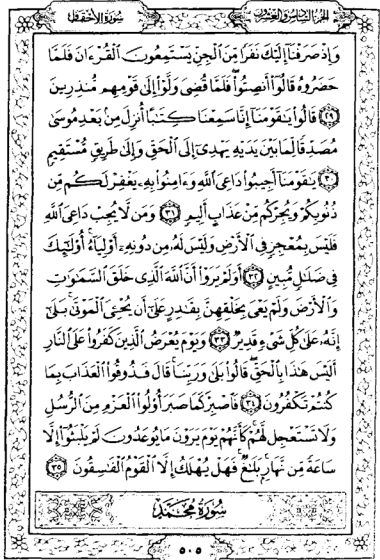 سُورَةُ الأَحْقَافِ الجُزْءُ السَّادِسُ وَالعِشْرُونَ
وَإِذْ صَرَفْنَآ إِلَيْكَ نَفَرًا مِّنَ ٱلْجِنِّ يَسْتَمِعُونَ ٱلْقُرْءَانَ فَلَمَّا
حَضَرُوهُ قَالُوٓا۟ أَنصِتُوا۟ فَلَمَّا قُضِىَ وَلَّوْا۟ إِلَىٰ قَوْمِهِم مُّنذِرِينَ
٢٩ قَالُوا۟ يَٰقَوْمَنَآ إِنَّا سَمِعْنَا كِتَٰبًا أُنزِلَ مِنۢ بَعْدِ مُوسَىٰ
مُصَدِّقًا لِّمَا بَيْنَ يَدَيْهِ يَهْدِىٓ إِلَى ٱلْحَقِّ وَإِلَىٰ طَرِيقٍ مُّسْتَقِيمٍ
٣٠ يَٰقَوْمَنَآ أَجِيبُوا۟ دَاعِىَ ٱللَّهِ وَءَامِنُوا۟ بِهِۦ يَغْفِرْ لَكُم مِّن
ذُنُوبِكُمْ وَيُجِرْكُم مِّنْ عَذَابٍ أَلِيمٍ ٣١ وَمَن لَّا يُجِبْ دَاعِىَ ٱللَّهِ
فَلَيْسَ بِمُعْجِزٍ فِى ٱلْأَرْضِ وَلَيْسَ لَهُۥ مِن دُونِهِۦٓ أَوْلِيَآءُ أُو۟لَٰٓئِكَ
فِى ضَلَٰلٍ مُّبِينٍ ٣٢ أَوَلَمْ يَرَوْا۟ أَنَّ ٱللَّهَ ٱلَّذِى خَلَقَ ٱلسَّمَٰوَٰتِ
وَٱلْأَرْضَ وَلَمْ يَعْىَ بِخَلْقِهِنَّ بِقَٰدِرٍ عَلَىٰٓ أَن يُحْـِۧىَ ٱلْمَوْتَىٰ بَلَىٰٓ
إِنَّهُۥ عَلَىٰ كُلِّ شَىْءٍ قَدِيرٌ ٣٣ وَيَوْمَ يُعْرَضُ ٱلَّذِينَ كَفَرُوا۟ عَلَى ٱلنَّارِ
أَلَيْسَ هَٰذَا بِٱلْحَقِّ قَالُوا۟ بَلَىٰ وَرَبِّنَا قَالَ فَذُوقُوا۟ ٱلْعَذَابَ بِمَا
كُنتُمْ تَكْفُرُونَ ٣٤ فَٱصْبِرْ كَمَا صَبَرَ أُو۟لُوا۟ ٱلْعَزْمِ مِنَ ٱلرُّسُلِ
وَلَا تَسْتَعْجِل لَّهُمْ كَأَنَّهُمْ يَوْمَ يَرَوْنَ مَا يُوعَدُونَ لَمْ يَلْبَثُوٓا۟ إِلَّا
سَاعَةً مِّن نَّهَارٍ بَلَٰغٌ فَهَلْ يُهْلَكُ إِلَّا ٱلْقَوْمُ ٱلْفَٰسِقُونَ ٣٥
سُورَةُ مُحَمَّدٍ
٥٠٥